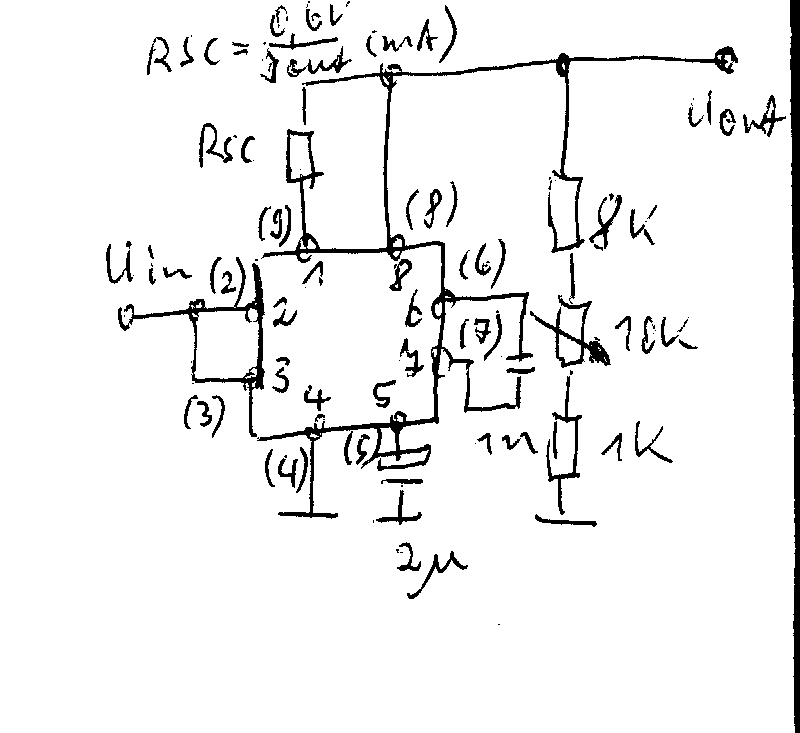 RSC = 0,6V / Jout (mA)
Uout
RSC
8K
(9)
(8)
1
8
Uin
(2)
2
(6)
6
(7)
7
10K
3
(3)
4
5
(4)
(5)
1n
1K
2μ